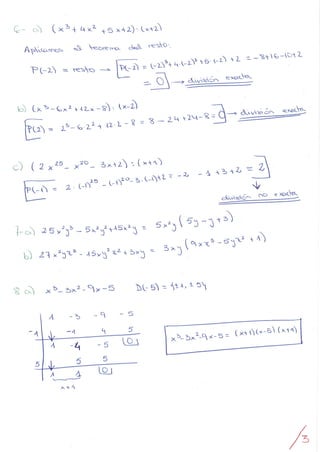 6- a) (x³ + 4x² + 5x + 2) : (x+2)
Aplicamos el teorema del resto:
P(-2) = resto → P(-2) = (-2)³ + 4·(-2)² + 5·(-2) + 2 = -8+16-10+2
= 0 → división exacta
b) (x³ - 6x² + 12x - 8) : (x-2)
P(2) = 2³ - 6·2² + 12·2 - 8 = 8 - 24 + 24 - 8 = 0 → división exacta
c) (2x²⁵ - x²⁰ - 3x + 2) : (x+1)
P(-1) = 2·(-1)²⁵ - (-1)²⁰ - 3·(-1) + 2 = -2 - 1 + 3 + 2 = 2
división no exacta
7- a) 25x²y³ - 5x²y² + 15x²y = 5x²y (5y - y + 3)
b) 27x²yz³ - 15xy³z² + 3xy = 3xy (9xz³ - 5y²z² + 1)
8 a) x³ - 3x² - 9x - 5 D(-5) = ±1, ± 5
1 -3 -9 -5
-1 -1 4 5
1 -4 -5 0
5 5 5
1 1 0
x+1
x³ - 3x² - 9x - 5 = (x+1)(x-5)(x+1)
/3